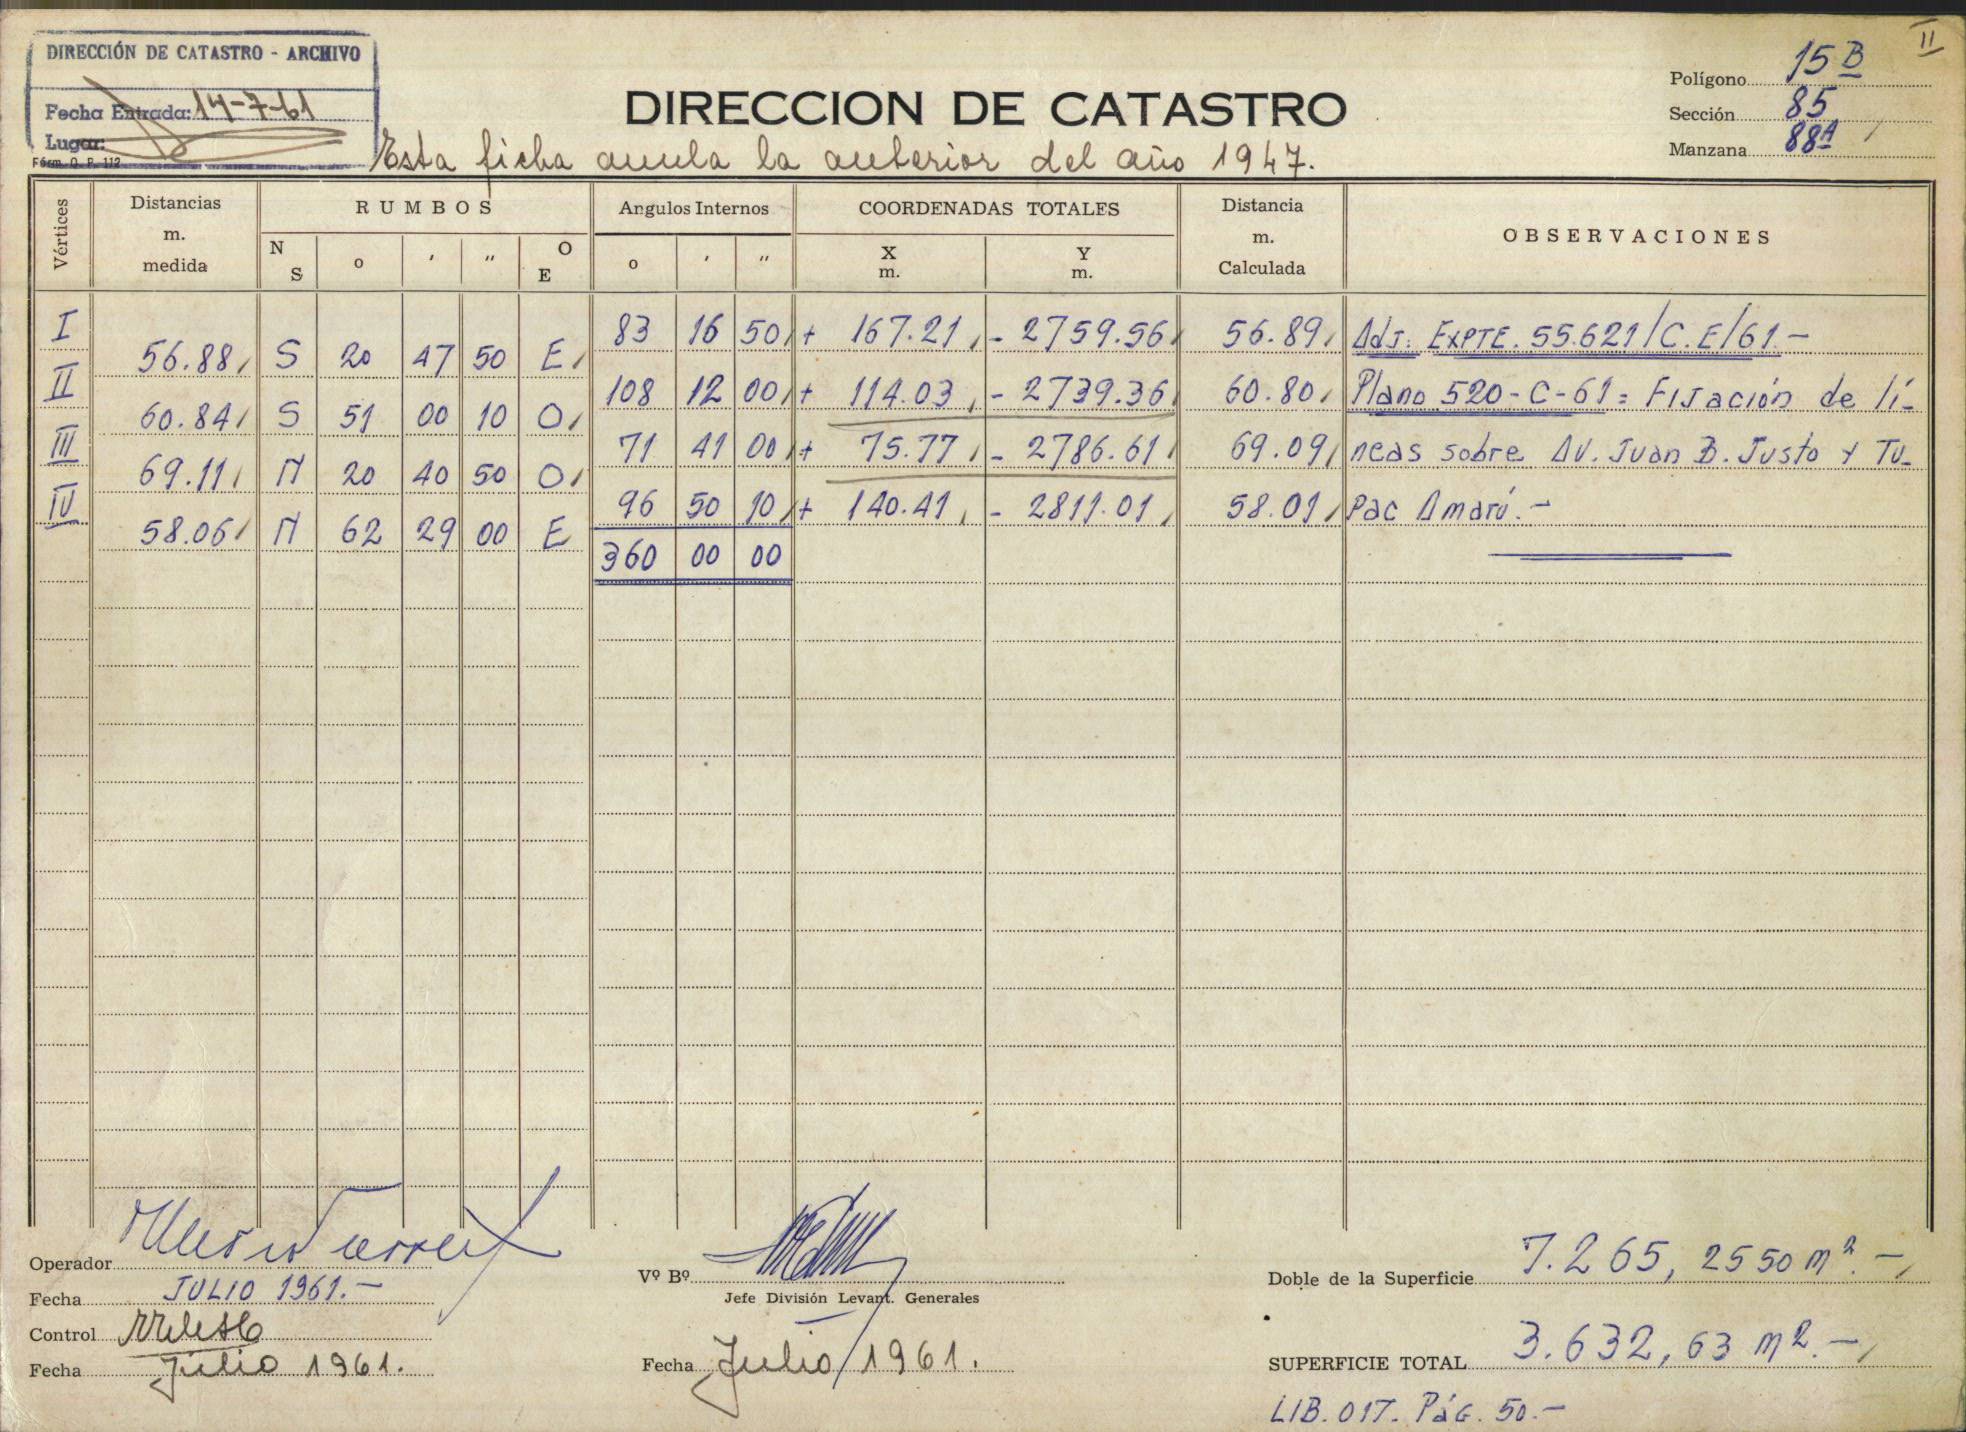 II
DIRECCIÓN DE CATASTRO - ARCHIVO
Fecha Entrada: 14-7-61
Lugar:
Fórm. O. P. 112
DIRECCION DE CATASTRO
Polígono 15 B
Sección 85
Manzana 88A
Esta ficha anula la anterior del año 1947.
Vértices Distancias m. medida RUMBOS Angulos Internos COORDENADAS TOTALES Distancia m. Calculada OBSERVACIONES
N S o ' " O E o ' " X m. Y m.
I 83 16 50 + 167.21 - 2759.56 56.89 Adj: EXPTE. 55.621/C.E/61.-
56.88 S 20 47 50 E
II 108 12 00 + 114.03 - 2739.36 60.80 Plano 520-C-61: Fijación de lí-
60.84 S 51 00 10 O
III 71 41 00 + 75.77 - 2786.61 69.09 neas sobre AV. Juan B. Justo y Tu-
69.11 N 20 40 50 O
IV 96 50 10 + 140.41 - 2811.01 58.01 pac Amarú.-
58.06 N 62 29 00 E
360 00 00
Operador
Fecha JULIO 1961.-
Control
Fecha Julio 1961.
Vº Bº
Jefe División Levant. Generales
Fecha Julio/1961.
Doble de la Superficie 7.265,2550 m2.-
SUPERFICIE TOTAL 3.632,63 m2.-
LIB. 017. Pág. 50.-